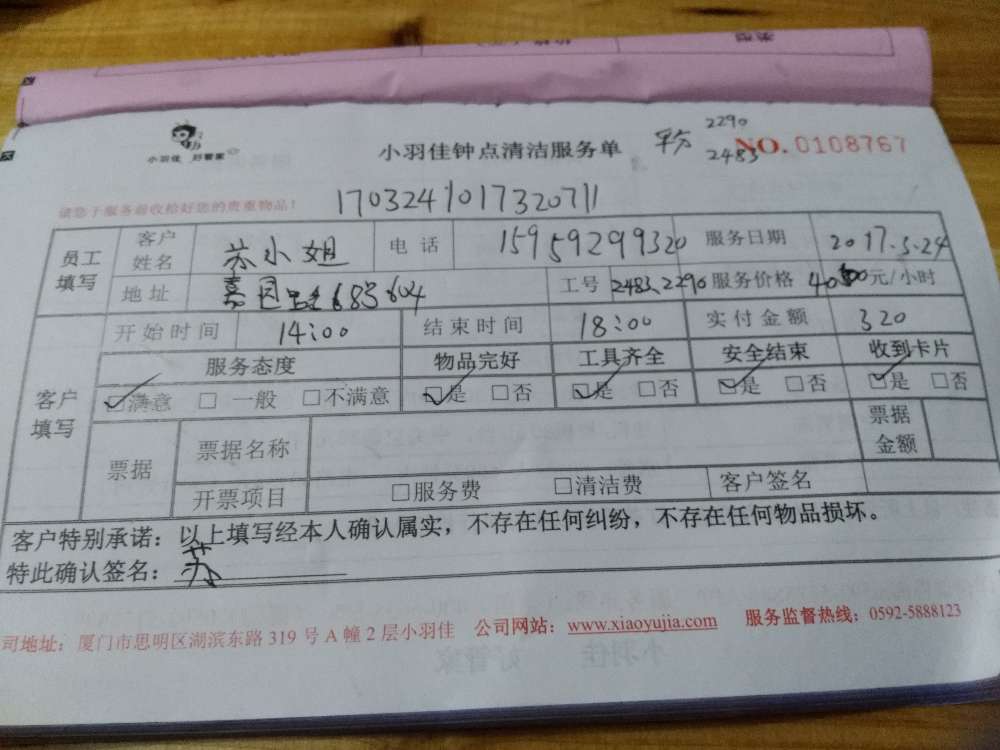 小羽佳 好管家
小羽佳钟点清洁服务单 平方 2290 2483 NO. 0108767
请您于服务前收拾好您的贵重物品！ 1703241017320711
员工填写 客户姓名 苏小姐 电话 15959299320 服务日期 2017.3.24
地址 嘉园路683 604 工号 2483、2290 服务价格 40元/小时
客户填写 开始时间 14:00 结束时间 18:00 实付金额 320
服务态度 物品完好 工具齐全 安全结束 收到卡片
☑满意 □ 一般 □不满意 ☑是 □否 ☑是 □否 ☑是 □否 ☑是 □否
票据 票据名称 票据金额
开票项目 □服务费 □清洁费 客户签名
客户特别承诺：以上填写经本人确认属实，不存在任何纠纷，不存在任何物品损坏。
特此确认签名：苏
司地址：厦门市思明区湖滨东路 319 号 A 幢 2 层小羽佳 公司网站：www.xiaoyujia.com 服务监督热线：0592-5888123